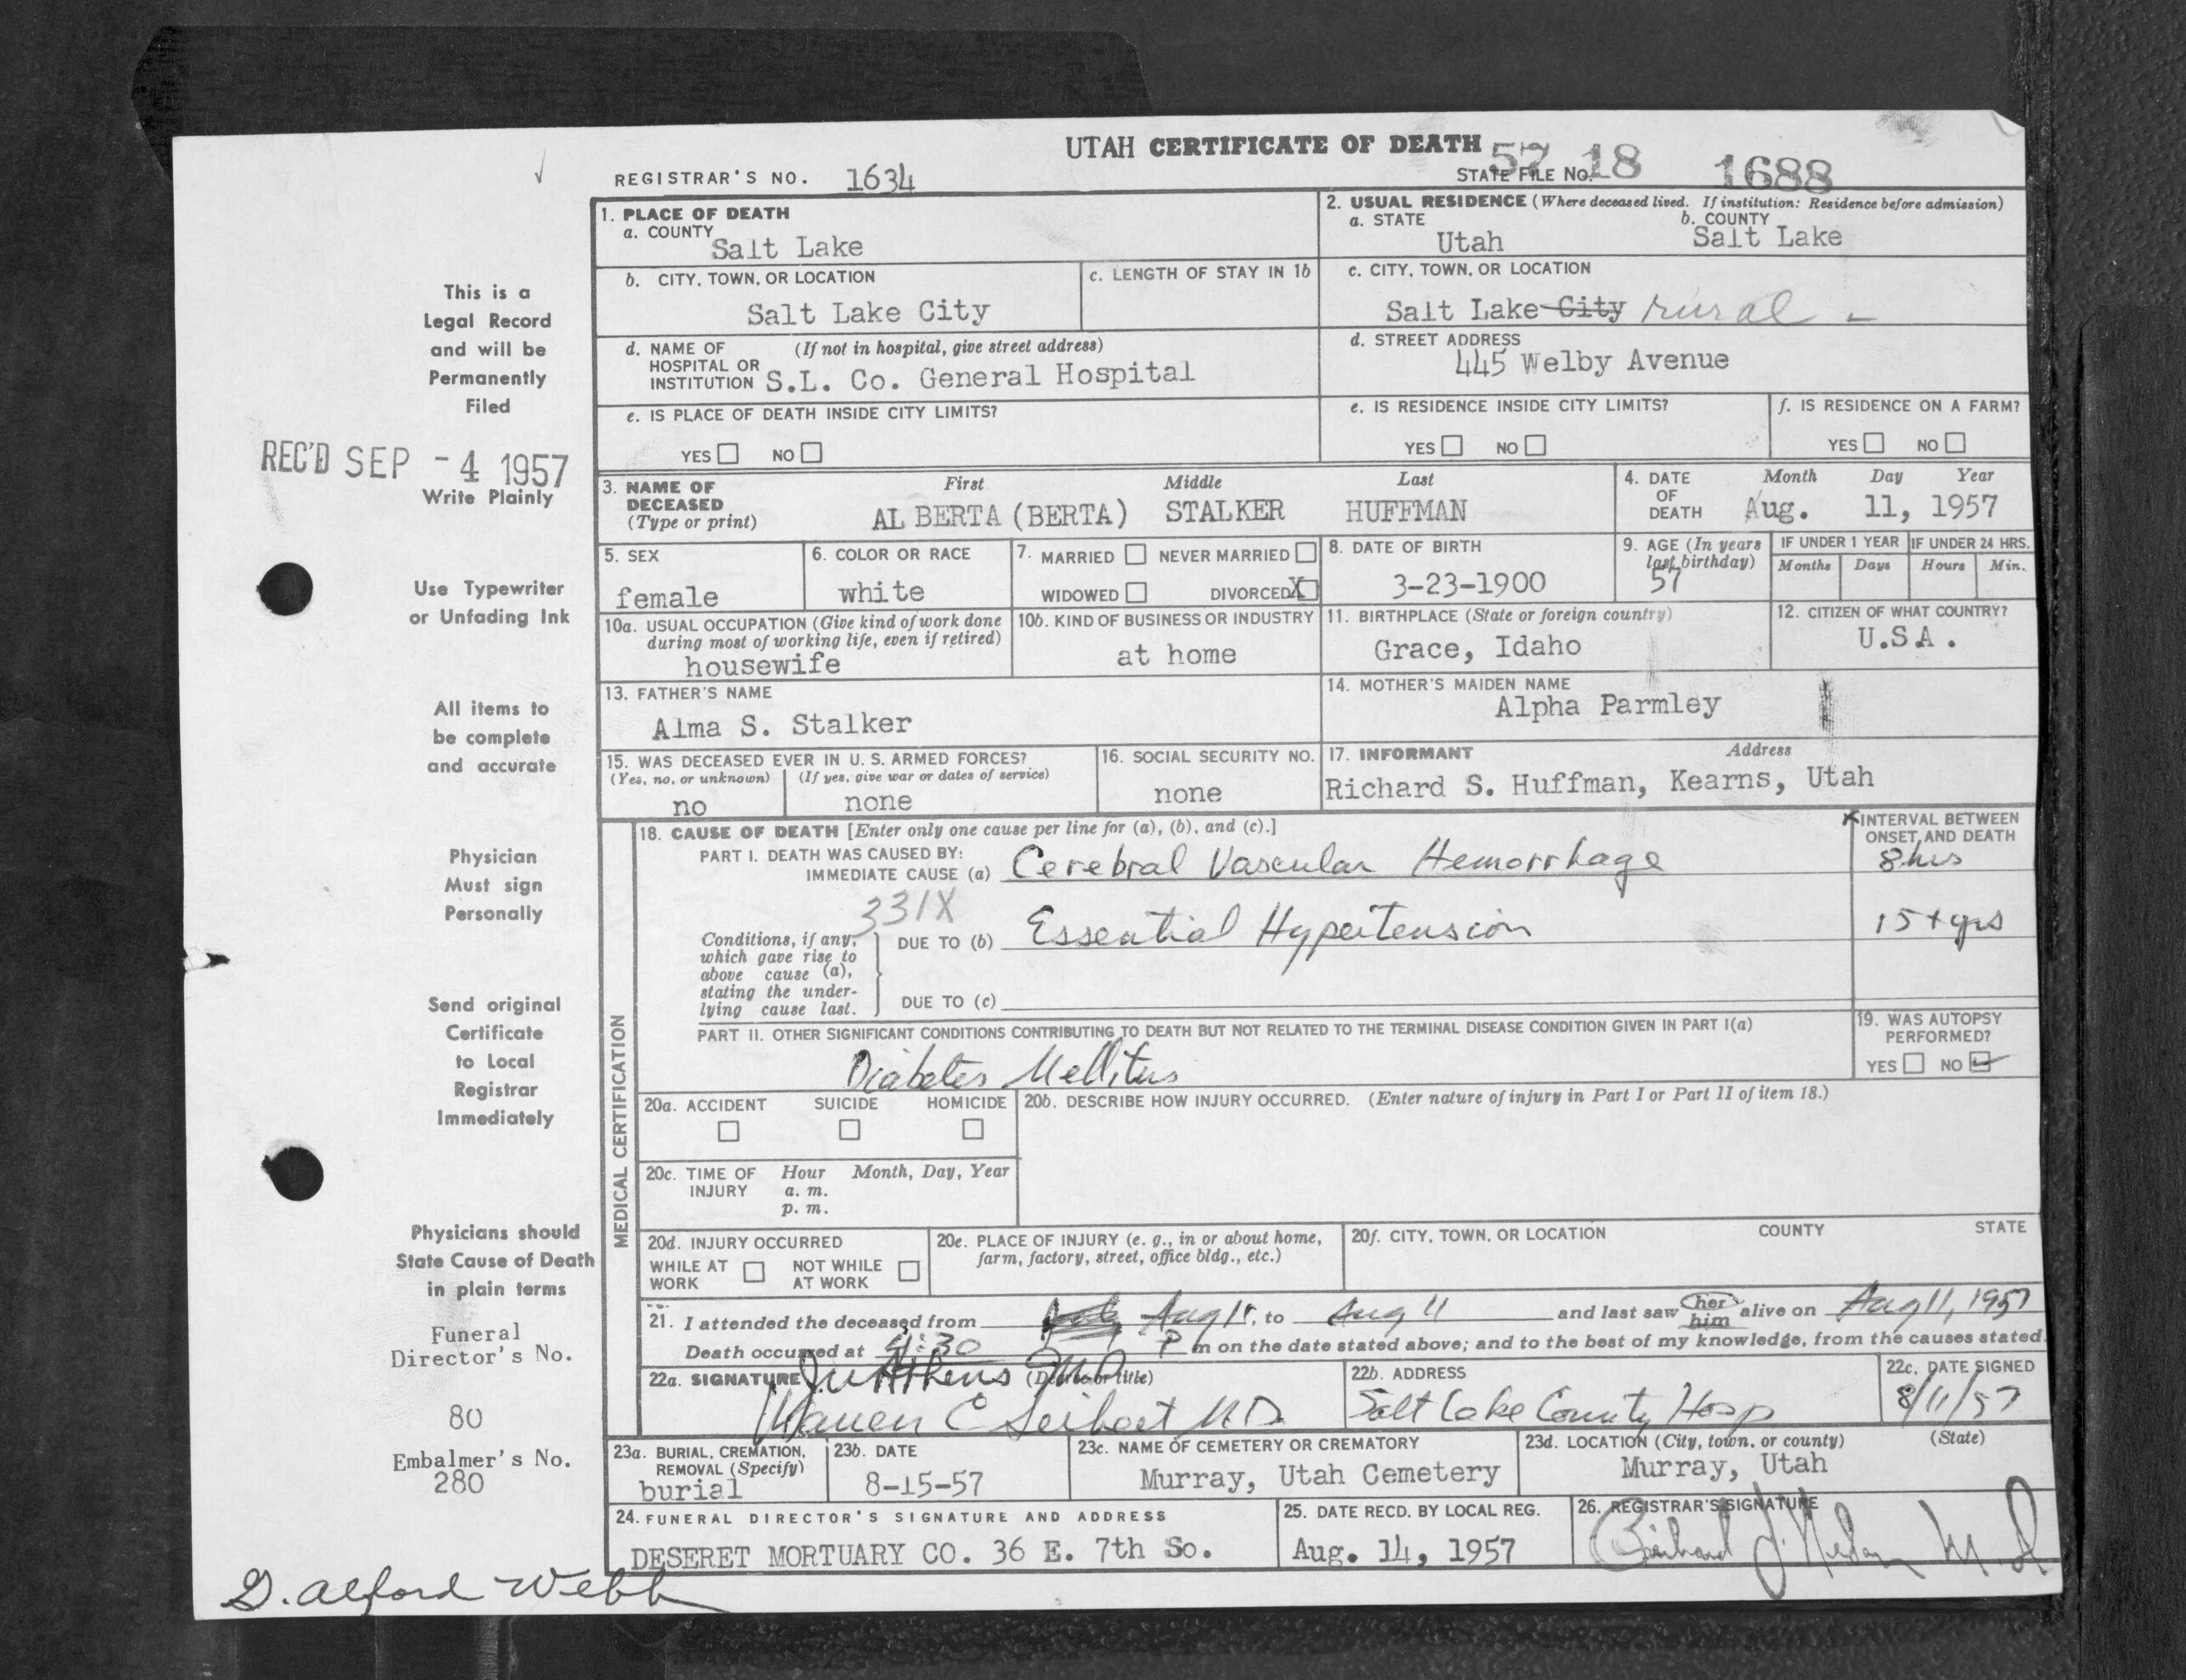 UTAH CERTIFICATE OF DEATH
REGISTRAR'S NO. 1634
STATE FILE NO. 57 18 1688
This is a
Legal Record
and will be
Permanently
Filed
REC'D SEP -4 1957
Write Plainly
Use Typewriter
or Unfading Ink
All items to
be complete
and accurate
Physician
Must sign
Personally
Send original
Certificate
to Local
Registrar
Immediately
Physicians should
State Cause of Death
in plain terms
Funeral
Director's No.
80
Embalmer's No.
280
1. PLACE OF DEATH
a. COUNTY
Salt Lake
2. USUAL RESIDENCE (Where deceased lived. If institution: Residence before admission)
a. STATE
Utah
b. COUNTY
Salt Lake
b. CITY, TOWN, OR LOCATION
Salt Lake City
c. LENGTH OF STAY IN 1b
c. CITY, TOWN, OR LOCATION
Salt Lake City rural -
d. NAME OF (If not in hospital, give street address)
HOSPITAL OR
INSTITUTION S.L. Co. General Hospital
d. STREET ADDRESS
445 Welby Avenue
e. IS PLACE OF DEATH INSIDE CITY LIMITS?
YES NO
e. IS RESIDENCE INSIDE CITY LIMITS?
YES NO
f. IS RESIDENCE ON A FARM?
YES NO
3. NAME OF
DECEASED
(Type or print)
First Middle Last
AL BERTA (BERTA) STALKER HUFFMAN
4. DATE
OF
DEATH
Month Day Year
Aug. 11, 1957
5. SEX
female
6. COLOR OR RACE
white
7. MARRIED NEVER MARRIED
WIDOWED DIVORCED X
8. DATE OF BIRTH
3-23-1900
9. AGE (In years
last birthday)
57
IF UNDER 1 YEAR
Months Days
IF UNDER 24 HRS.
Hours Min.
10a. USUAL OCCUPATION (Give kind of work done
during most of working life, even if retired)
housewife
10b. KIND OF BUSINESS OR INDUSTRY
at home
11. BIRTHPLACE (State or foreign country)
Grace, Idaho
12. CITIZEN OF WHAT COUNTRY?
U.S.A.
13. FATHER'S NAME
Alma S. Stalker
14. MOTHER'S MAIDEN NAME
Alpha Parmley
15. WAS DECEASED EVER IN U. S. ARMED FORCES?
(Yes, no, or unknown) (If yes, give war or dates of service)
no none
16. SOCIAL SECURITY NO.
none
17. INFORMANT Address
Richard S. Huffman, Kearns, Utah
MEDICAL CERTIFICATION
18. CAUSE OF DEATH [Enter only one cause per line for (a), (b), and (c).]
PART I. DEATH WAS CAUSED BY:
IMMEDIATE CAUSE (a) Cerebral Vascular Hemorrhage
INTERVAL BETWEEN
ONSET AND DEATH
8 hrs
331X
Conditions, if any,
which gave rise to
above cause (a),
stating the under-
lying cause last.
DUE TO (b) Essential Hypertension
15+ yrs
DUE TO (c)
PART II. OTHER SIGNIFICANT CONDITIONS CONTRIBUTING TO DEATH BUT NOT RELATED TO THE TERMINAL DISEASE CONDITION GIVEN IN PART I(a)
Diabetes Mellitus
19. WAS AUTOPSY
PERFORMED?
YES NO
20a. ACCIDENT SUICIDE HOMICIDE
20b. DESCRIBE HOW INJURY OCCURRED. (Enter nature of injury in Part I or Part II of item 18.)
20c. TIME OF Hour Month, Day, Year
INJURY a. m.
p. m.
20d. INJURY OCCURRED
WHILE AT NOT WHILE
WORK AT WORK
20e. PLACE OF INJURY (e. g., in or about home,
farm, factory, street, office bldg., etc.)
20f. CITY, TOWN, OR LOCATION COUNTY STATE
21. I attended the deceased from Aug 11, to Aug 11 and last saw her him alive on Aug 11, 1957
Death occurred at :30 P m on the date stated above; and to the best of my knowledge, from the causes stated.
22a. SIGNATURE (Degree or title)
Warren C Seibert M.D.
22b. ADDRESS
Salt Lake County Hosp
22c. DATE SIGNED
8/11/57
23a. BURIAL, CREMATION,
REMOVAL (Specify)
burial
23b. DATE
8-15-57
23c. NAME OF CEMETERY OR CREMATORY
Murray, Utah Cemetery
23d. LOCATION (City, town, or county) (State)
Murray, Utah
24. FUNERAL DIRECTOR'S SIGNATURE AND ADDRESS
DESERET MORTUARY CO. 36 E. 7th So.
25. DATE RECD. BY LOCAL REG.
Aug. 14, 1957
26. REGISTRAR'S SIGNATURE
G. Alford Webb